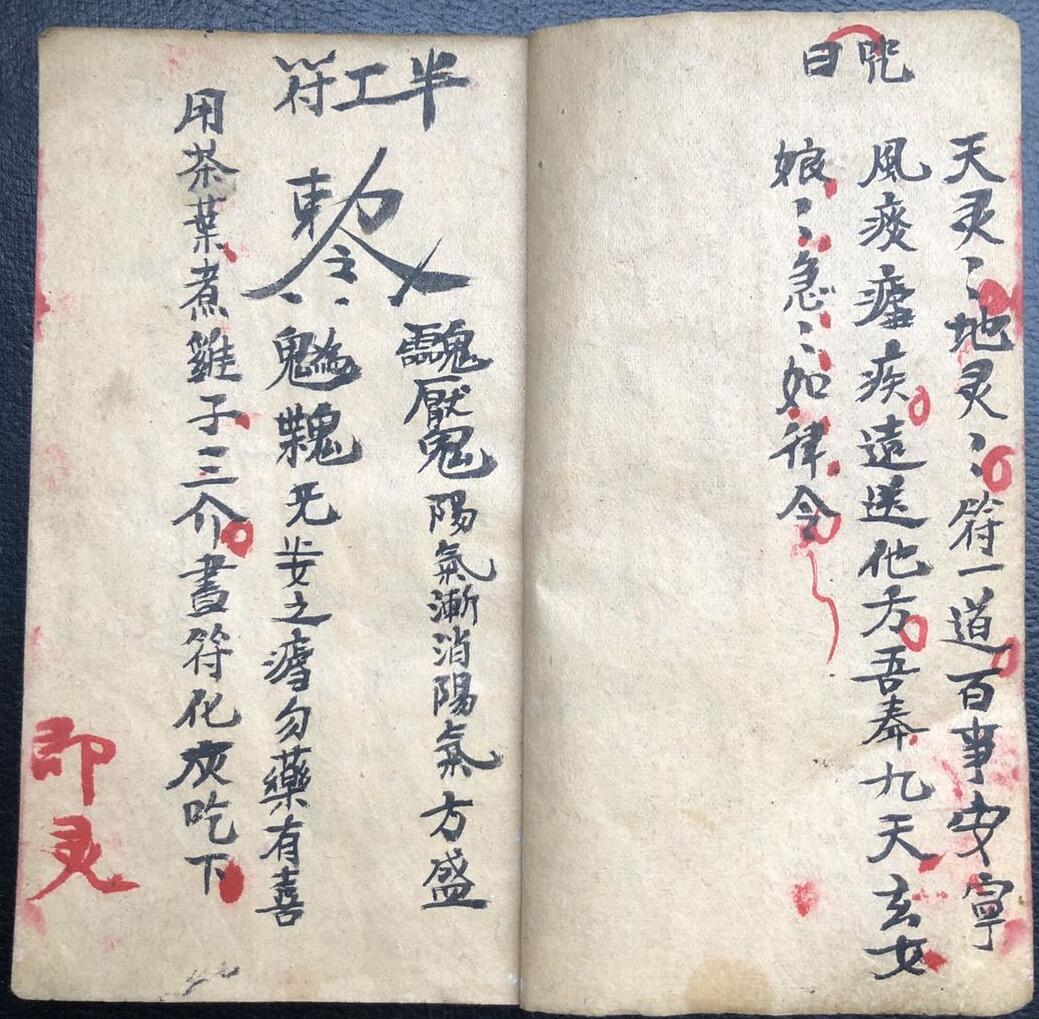 咒曰
天灵〻地灵〻符一道百事安寧
風痰瘧疾遠送他方吾奉九天玄女
娘〻急〻如律令
半工符
勅令
厭鬼陽氣漸消陽氣方盛
无妄之瘧勿藥有喜
用茶葉煮雞子三介畫符化灰吃下
即灵